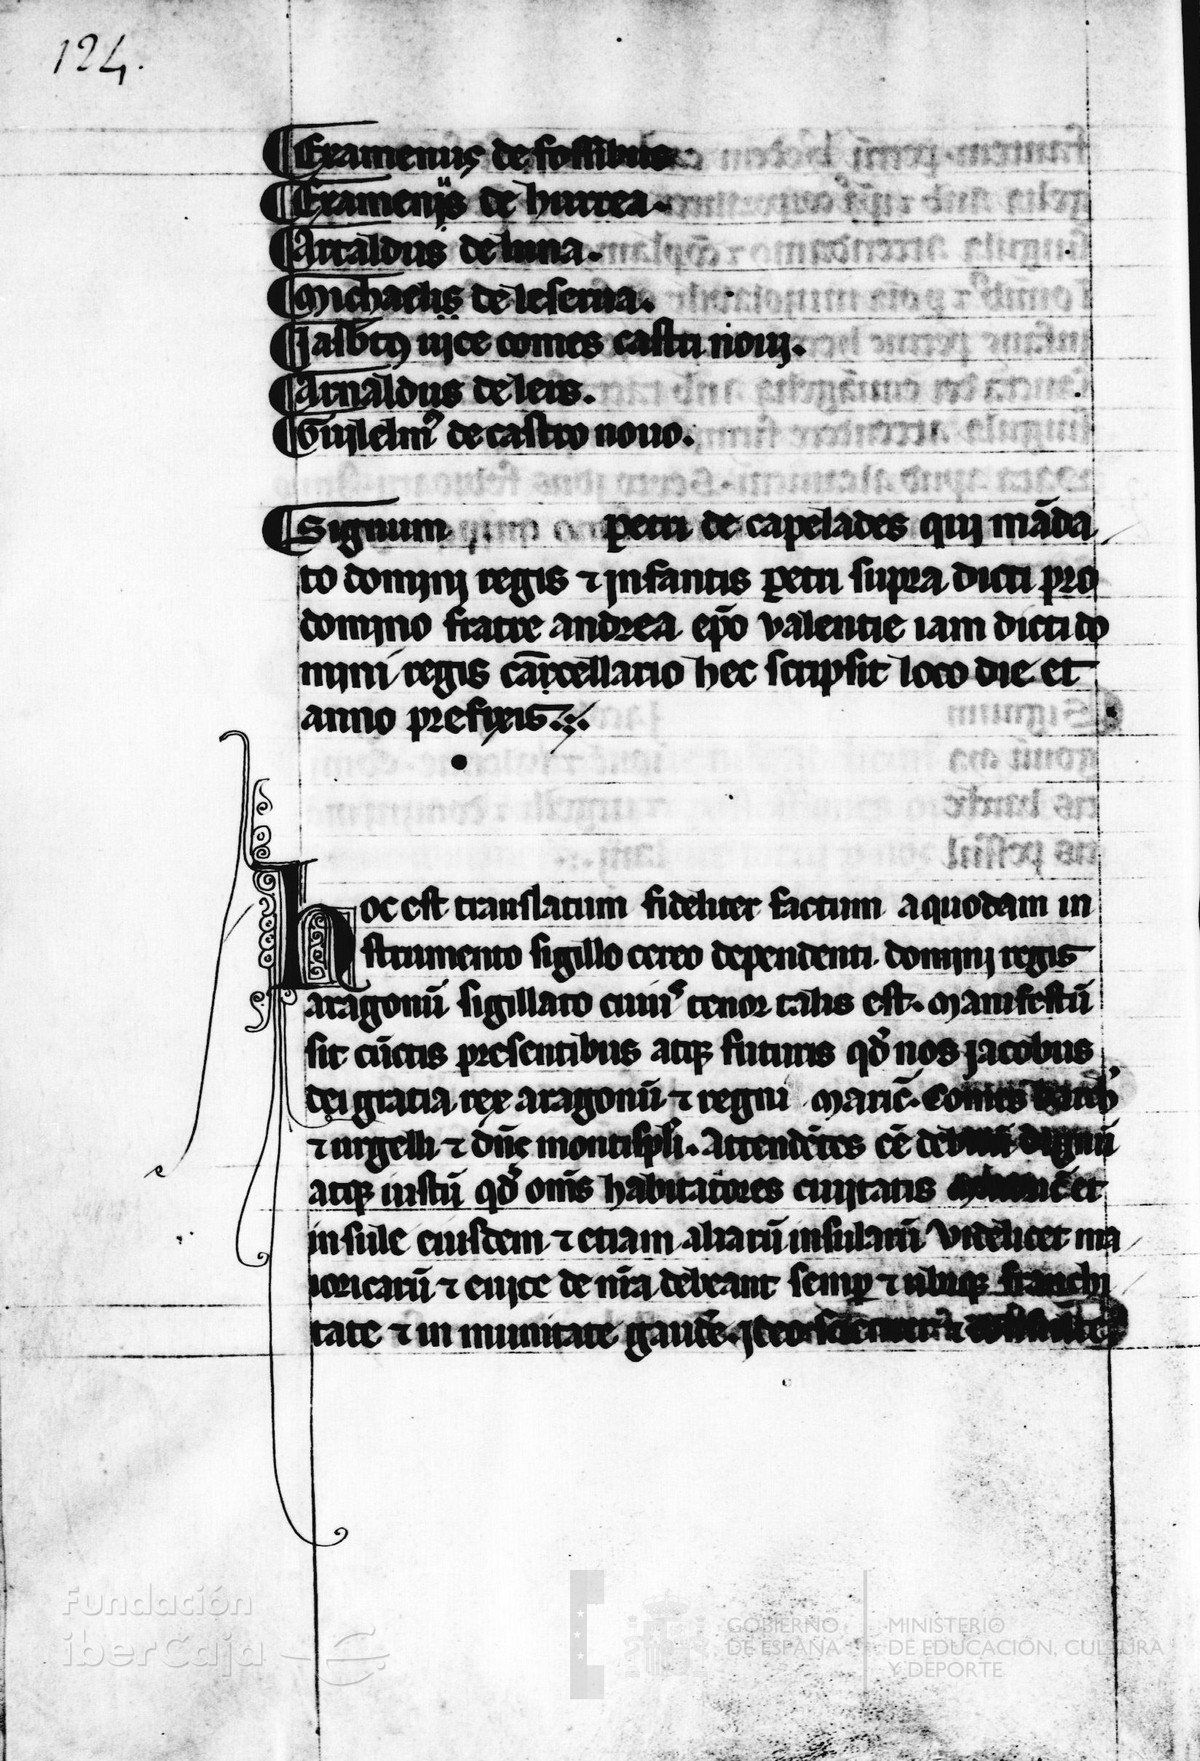 124.
Examenus de fossibus
Examenijs de hurrea.
Artaldus de luna.
Michaelis de leserna.
Jasbt9 vice comes castri novi.
Arnaldus de lers.
Guilelm9 de castro novo.
Signum petri de capelades qui mãda
to domini regis ⁊ infantis petri supra dicti pro
domino fratre andrea ep̃o valentie iam dicti do
mini regis cãcellario hec scripsit loco die et
anno prefixis.
hoc est translatum fideliter factum a quodam in
strumento sigillo cereo dependenti domini regis
aragonũ sigillato cuius tenor talis est. Manifestũ
sit cũctis presentibus atq; futuris qd̃ nos jacobus
dei gratia rex aragonũ ⁊ regni Maric̃. Comes barch̃
⁊ urgelli ⁊ dñs montispl̃i. Attendẽtes cẽ dignũ
atq; iustũ qd̃ om̃s habitatores civitatis et
insule eiusdem ⁊ etiam aliarũ insularũ videlicet ma
ioricarũ ⁊ evice de nr̃a debeant semp ⁊ ubiq; franchi
tate ⁊ in munitate gaudẽ. Ideo
Fundación
iberCaja
GOBIERNO
DE ESPAÑA
MINISTERIO
DE EDUCACIÓN, CULTURA
Y DEPORTE